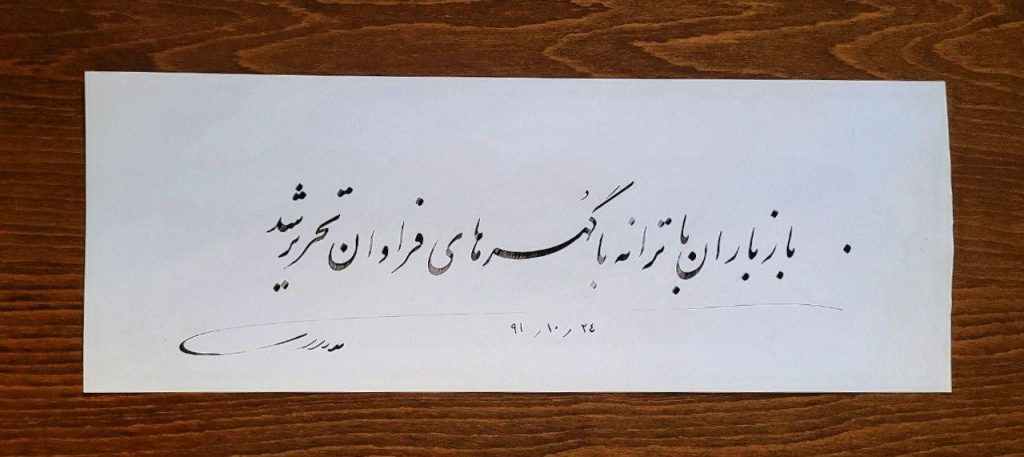 باز باران با ترانه با گهرهای فراوان تحریر شد
۹۱٫۱۰٫۲۴